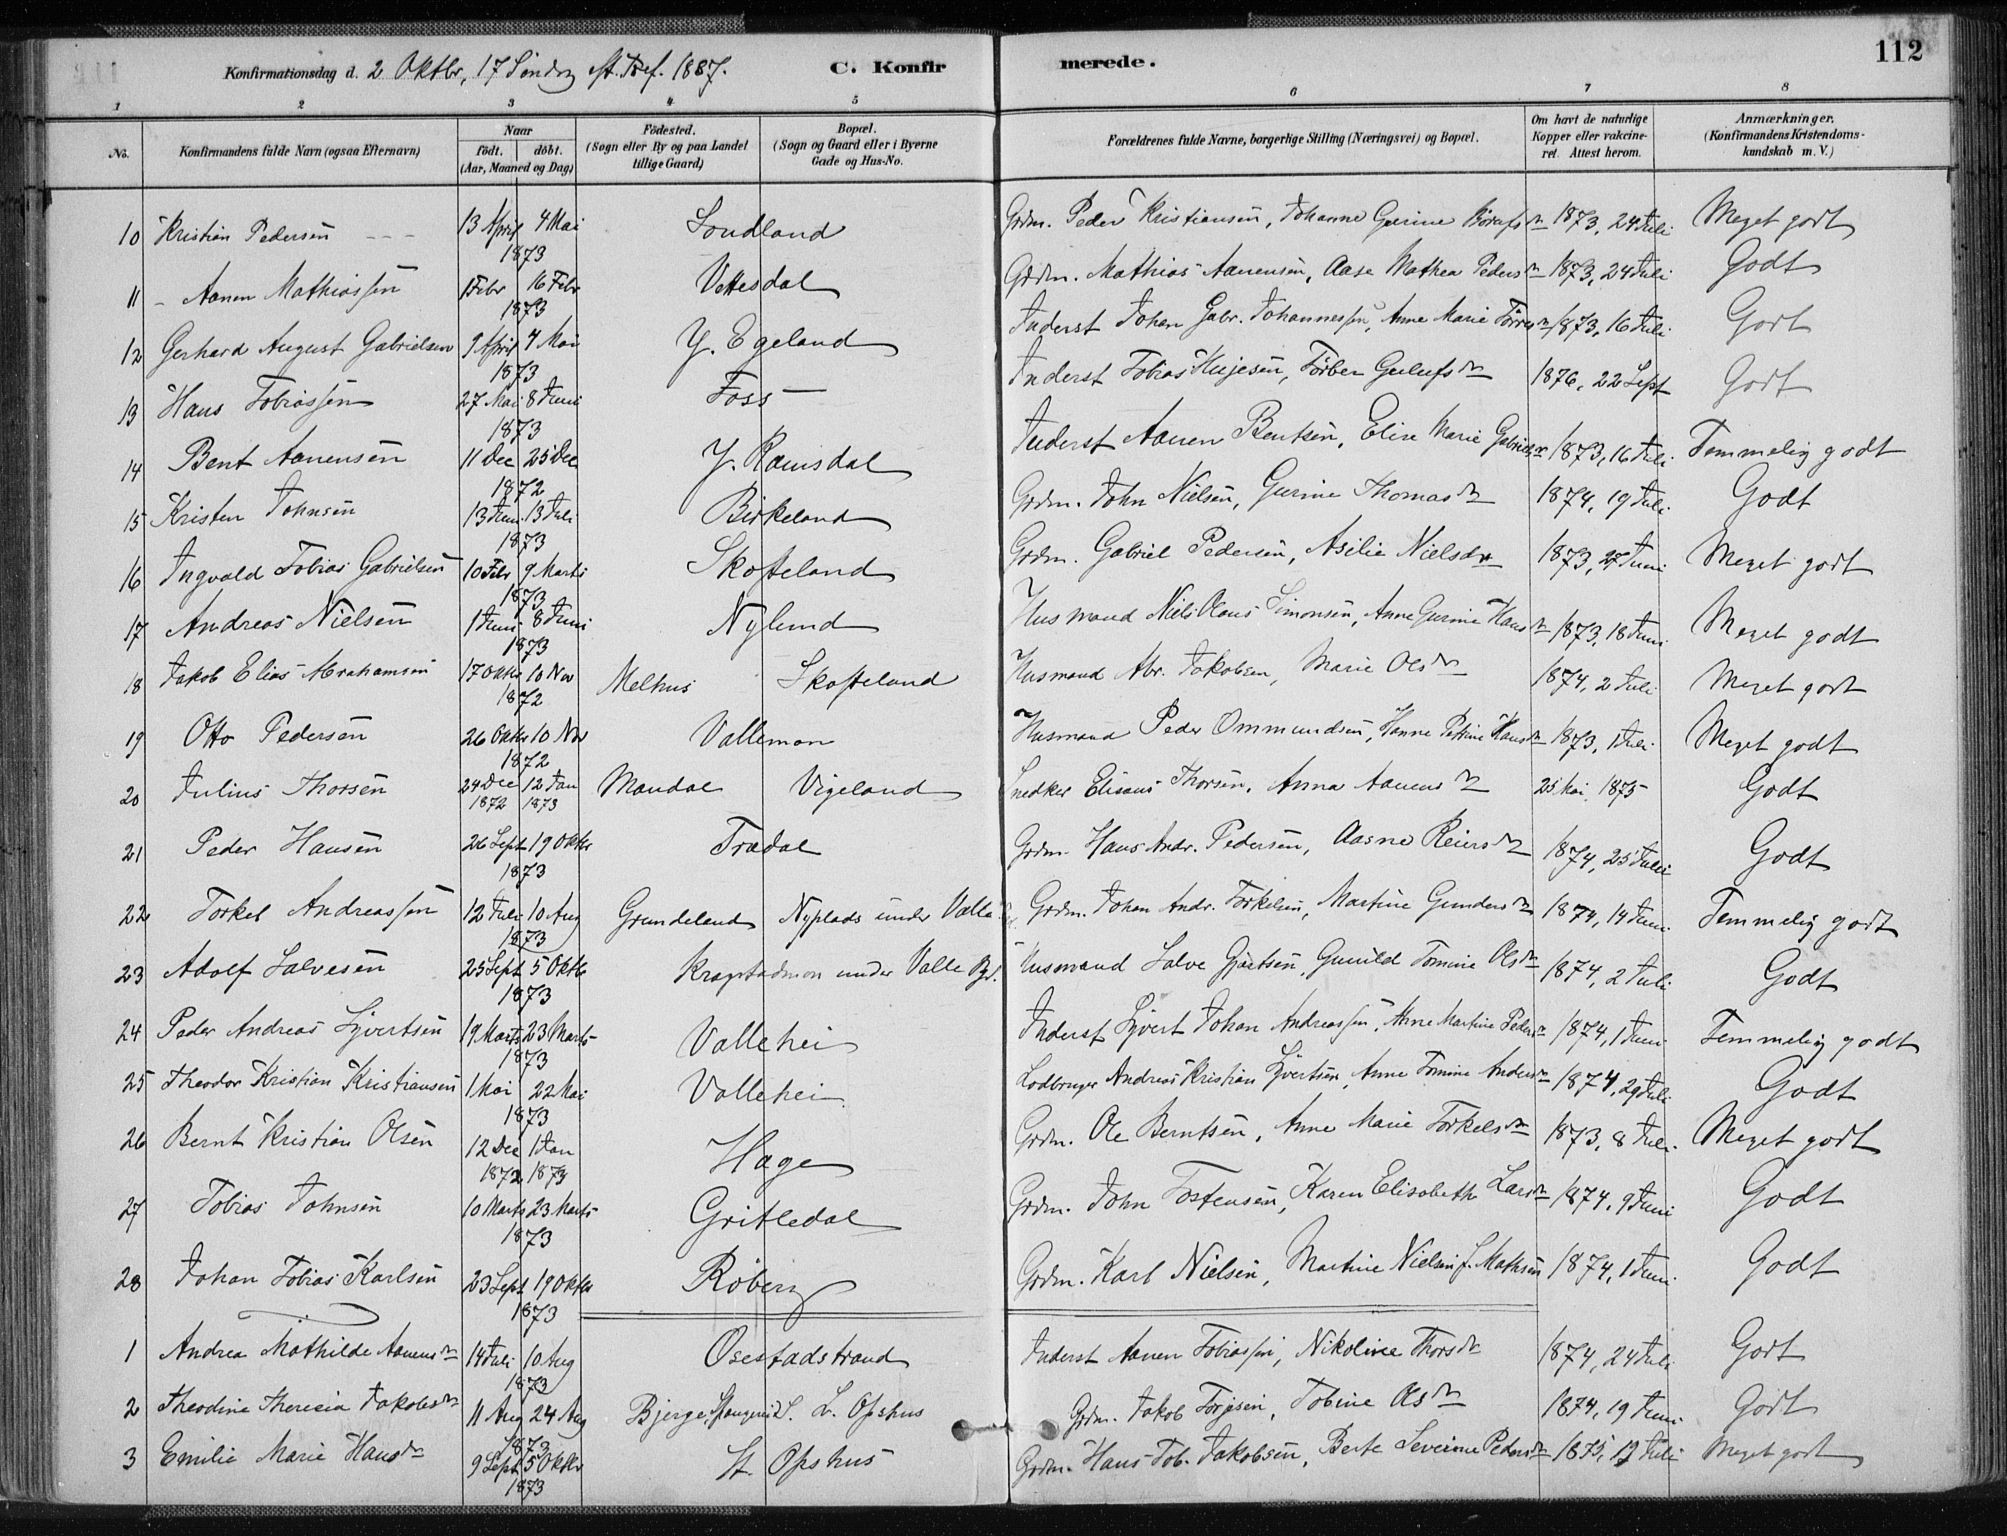 112
Konfirmationsdag d. 2 Oktbr, 17 Søndag eft. Tref. 1887. C. Konfirmerede.
1 2 3 4 5 6 7 8
No. Konfirmandens fulde Navn (ogsaa Efternavn) Naar født. døbt. (Aar, Maaned og Dag) Fødested. (Sogn eller By og paa Landet tillige Gaard) Bopæl. (Sogn og Gaard eller i Byerne Gade og Hus-No. Forældrenes fulde Navne, borgerlige Stilling (Næringsvei) og Bopæl. Om havt de naturlige Kopper eller vaccineret. Attest herom. Anmærkninger. (Konfirmandens Kristendomskundskab m. V.)
10 Kristian Pedersen 13 April 4 Mai 1873 Londland Grdm. Peder Kristiansen, Johanne Gurine 1873, 24 Juli Meget godt
11 Aanen Mathiassen 1 Febr 16 Febr 1873 Vettesdal Grdm. Mathias Aanensen, Aase Mathea Pedersdr 1873, 24 Juli Godt
12 Gerhard August Gabrielsen 9 April 4 Mai 1873 Y. Egeland Inderst Johan Gabr. Johannessen, Anne Marie 1873, 16 Juli Godt
13 Hans Tobiassen 27 Mai 8 Juni 1873 Foss Inderst Tobias 1876, 22 Sept Godt
14 Bent Aanensen 11 Dec 25 Dec 1872 Y. Ramsdal Inderst Aanen Bentsen, Elise Marie Gabrielsdr 1873, 16 Juli Temmelig godt
15 Kristen Johnsen 13 Juni 13 Juli 1873 Birkeland Grdm. John Nielsen, Gurine Thomasdr 1874, 19 Juli Godt
16 Ingvald Tobias Gabrielsen 10 Febr 9 Marts 1873 Skofteland Grdm. Gabriel Pedersen, Asilie Nielsdr 1873, 27 Juni Meget godt
17 Andreas Nielsen 1 Juni 8 Juni 1873 Nylund Husmand Niels Olaus Simonsen, Anne Gurine Hansdr 1873, 18 Juni Meget godt
18 Jakob Elias Abrahamsen 17 Oktbr 10 Nov 1872 Melhus Skofteland Husmand Abr. Jakobsen, Marie Olsdr 1874, 2 Juli Meget godt
19 Otto Pedersen 26 Oktbr 10 Nov 1872 Vallemon Husmand Peder Ommundsen, Hanne Petrine Hansdr 1873, 1 Juli Meget godt
20 Julius Thorsen 24 Dec 1872 12 Jan 1873 Mandal Vigeland Snedker Elisæus Thorsen, Anna Aanensdr 25 Mai 1875 Godt
21 Peder Hansen 26 Sept 19 Oktbr 1873 Trædal Grdm. Hans Andr. Pedersen, Aasne Reiersdr 1874, 25 Juli Godt
22 Torkel Andreassen 12 Juli 10 Aug 1873 Grundeland Nyplads under Valle Grdm. Johan Andr. Torkelsen, Martine Gundersdr 1874, 14 Juni Temmelig godt
23 Adolf Salvesen 25 Sept 5 Oktbr 1873 Kragstadmon under Valle Husmand Salve Gjertsen, Gunild Tomine Olsdr 1874, 2 Juli Godt
24 Peder Andreas Syvertsen 19 Marts 23 Marts 1873 Vallehei Inderst Syvert Johan Andreassen, Anne Martine Pedersdr 1874, 1 Juni Temmelig godt
25 Theodor Kristian Kristiansen 1 Mai 22 Mai 1873 Vallehei Andreas Kristian Syvertsen, Anne Tomine Andersdr 1874, 29 Juli Godt
26 Bernt Kristian Olsen 12 Dec 1872 1 Jan 1873 Hage Grdm. Ole Berntsen, Anne Marie Torkelsdr 1873, 8 Juli Meget godt
27 Tobias Johnsen 10 Marts 23 Marts 1873 Gritledal Grdm. John Tostensen, Karen Elisabeth Larsdr 1874, 9 Juni Godt
28 Johan Tobias Karlsen 23 Sept 19 Oktbr 1873 Røberg Grdm. Karl Nielsen, Martine Nielsen f. Mathsen 1874, 1 Juni Godt
1 Andrea Mathilde Aanensdr 14 Juli 10 Aug 1873 Osestadstrand Inderst Aanen Tobiassen, Nikoline Thorsdr 1874, 24 Juli Godt
2 Theodine Theresia Jakobsdr 11 Aug 24 Aug 1873 Bjerge, L. Opshus Grdm. Jakob Torjesen, Tobine Olsdr 1874, 19 Juni Godt
3 Emilie Marie Hansdr 9 Sept 5 Oktbr 1873 St. Opshus Grdm. Hans Tob. Jakobsen, Berte Severine Pedersdr 1875, 19 Juli Meget godt